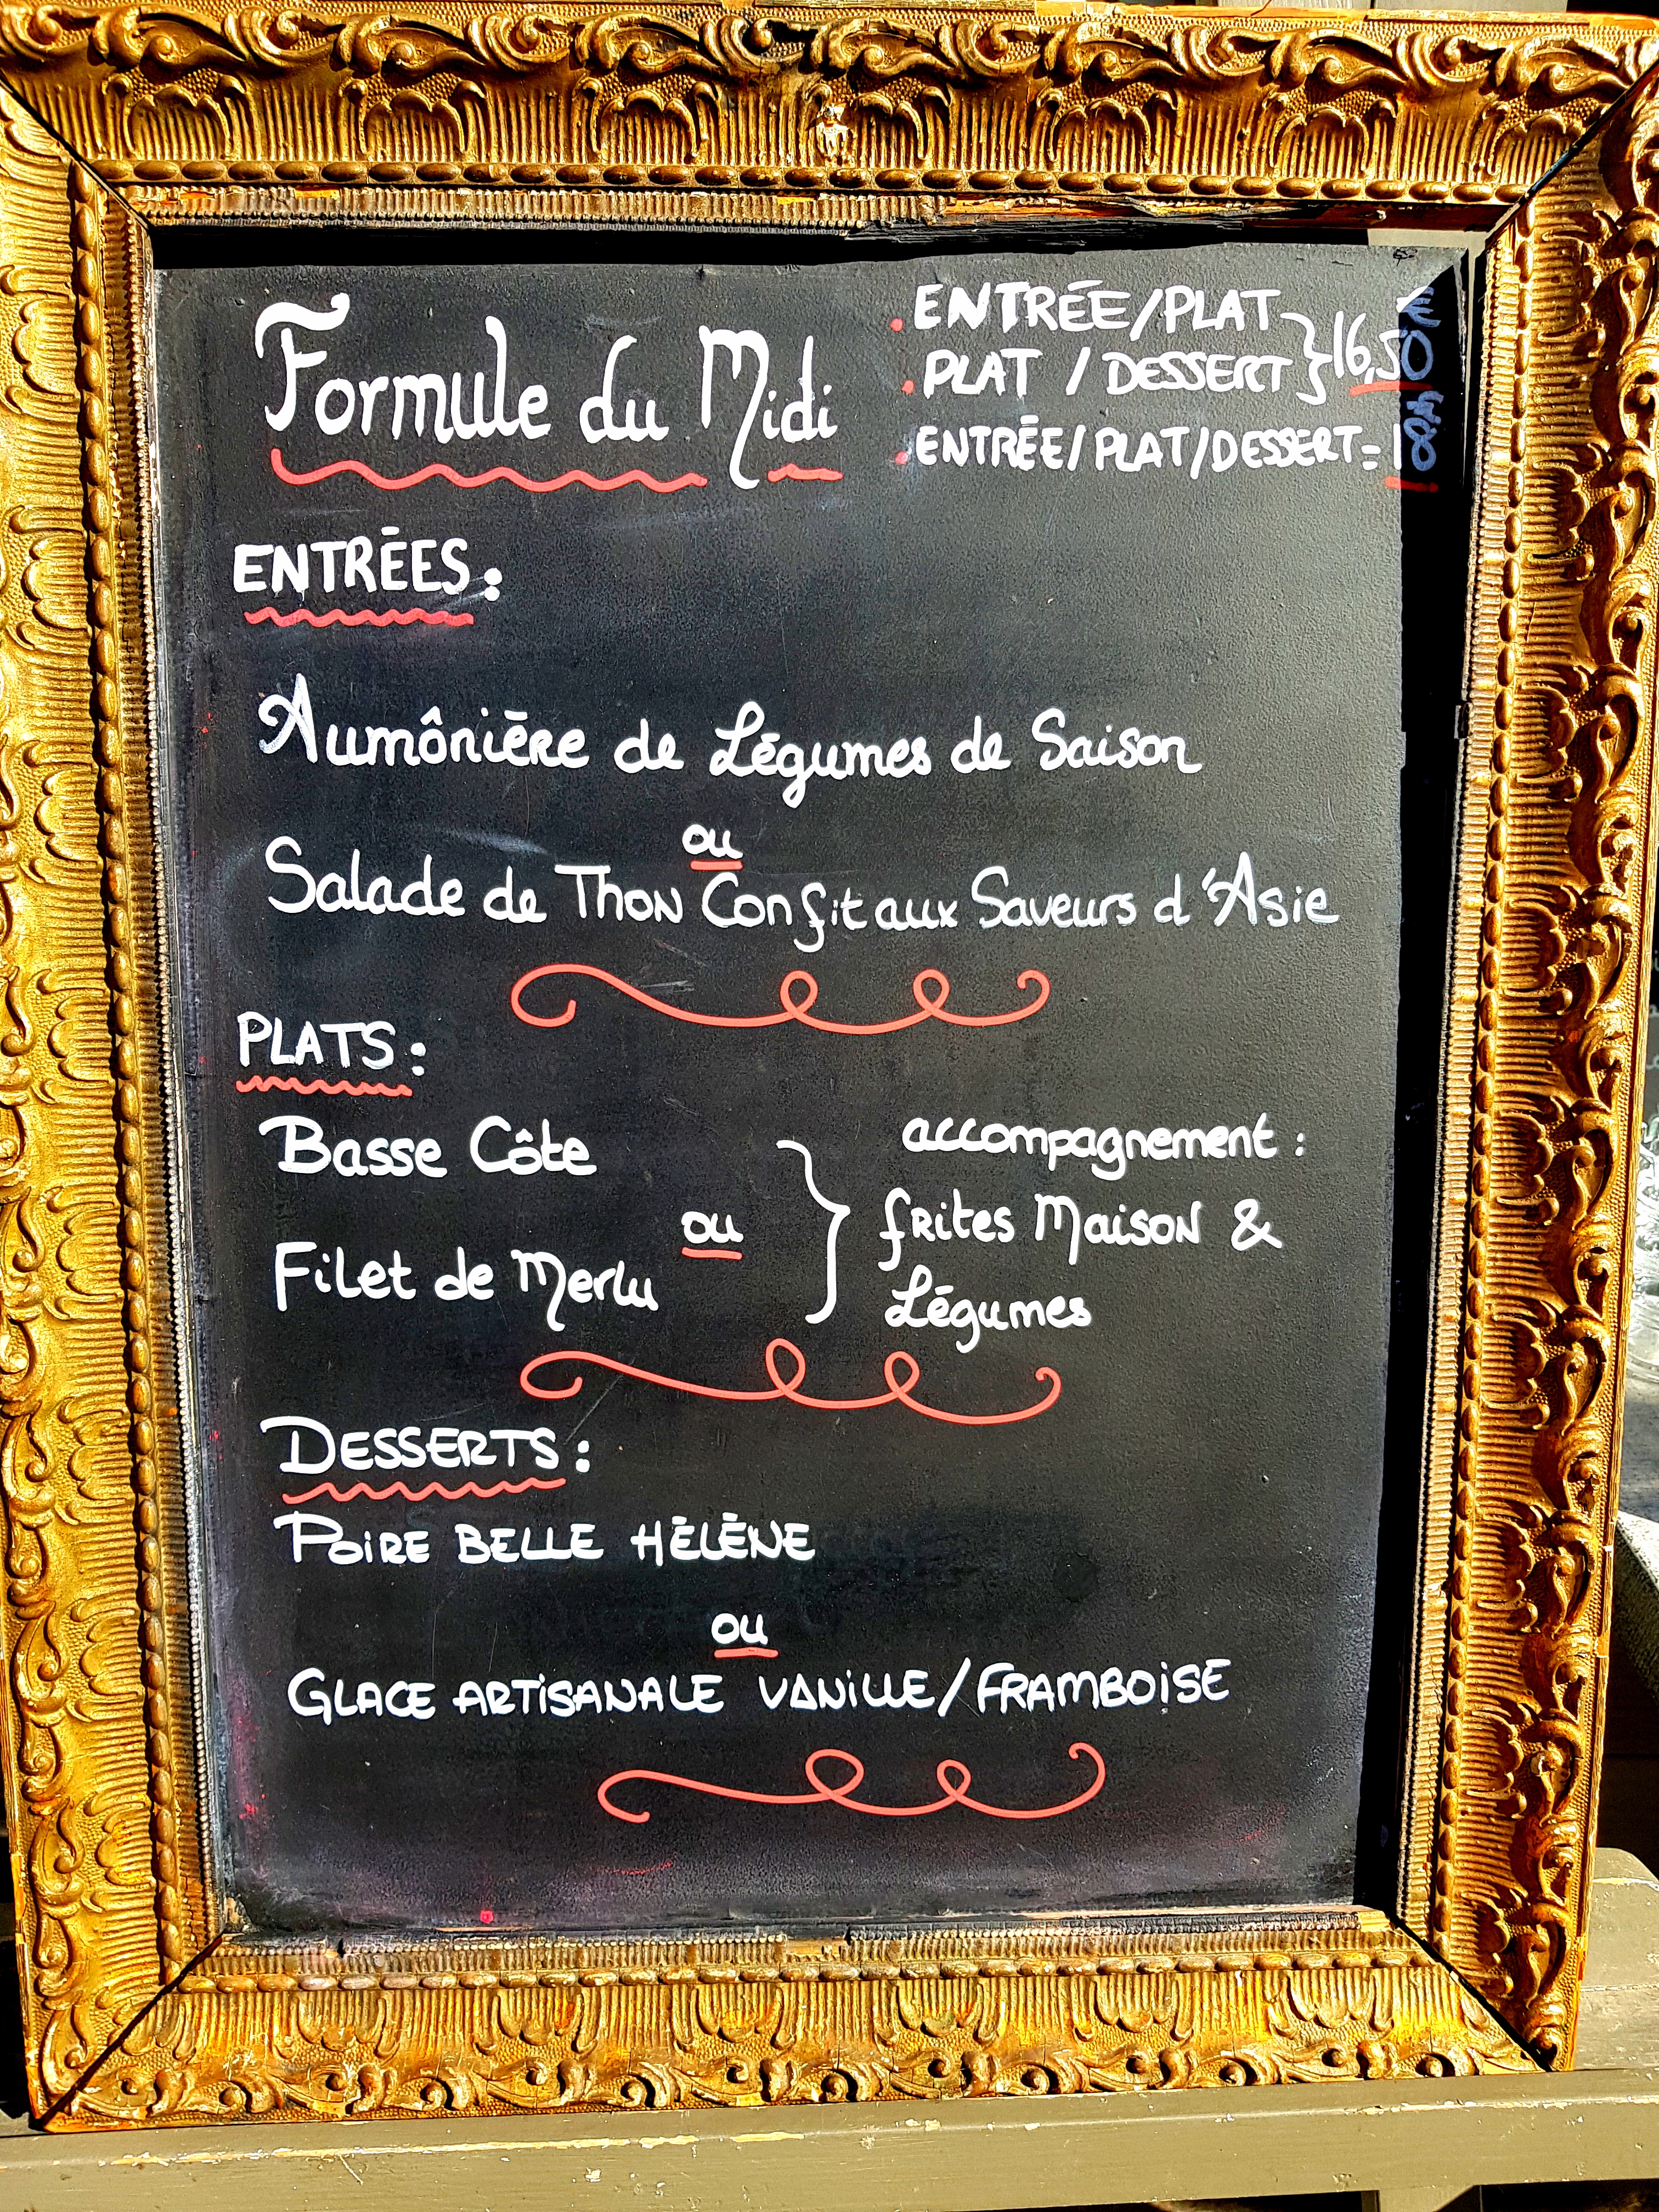 Formule du Midi
. ENTRÉE/PLAT
. PLAT / DESSERT } 16,50 €
. ENTRÉE/PLAT/DESSERT = 18€
ENTRÉES :
Aumônière de Légumes de Saison
ou
Salade de Thon Confit aux Saveurs d'Asie
PLATS :
Basse Côte
ou
Filet de Merlu
accompagnement :
frites Maison &
Légumes
DESSERTS :
POIRE BELLE HÉLÈNE
ou
GLACE ARTISANALE VANILLE/FRAMBOISE